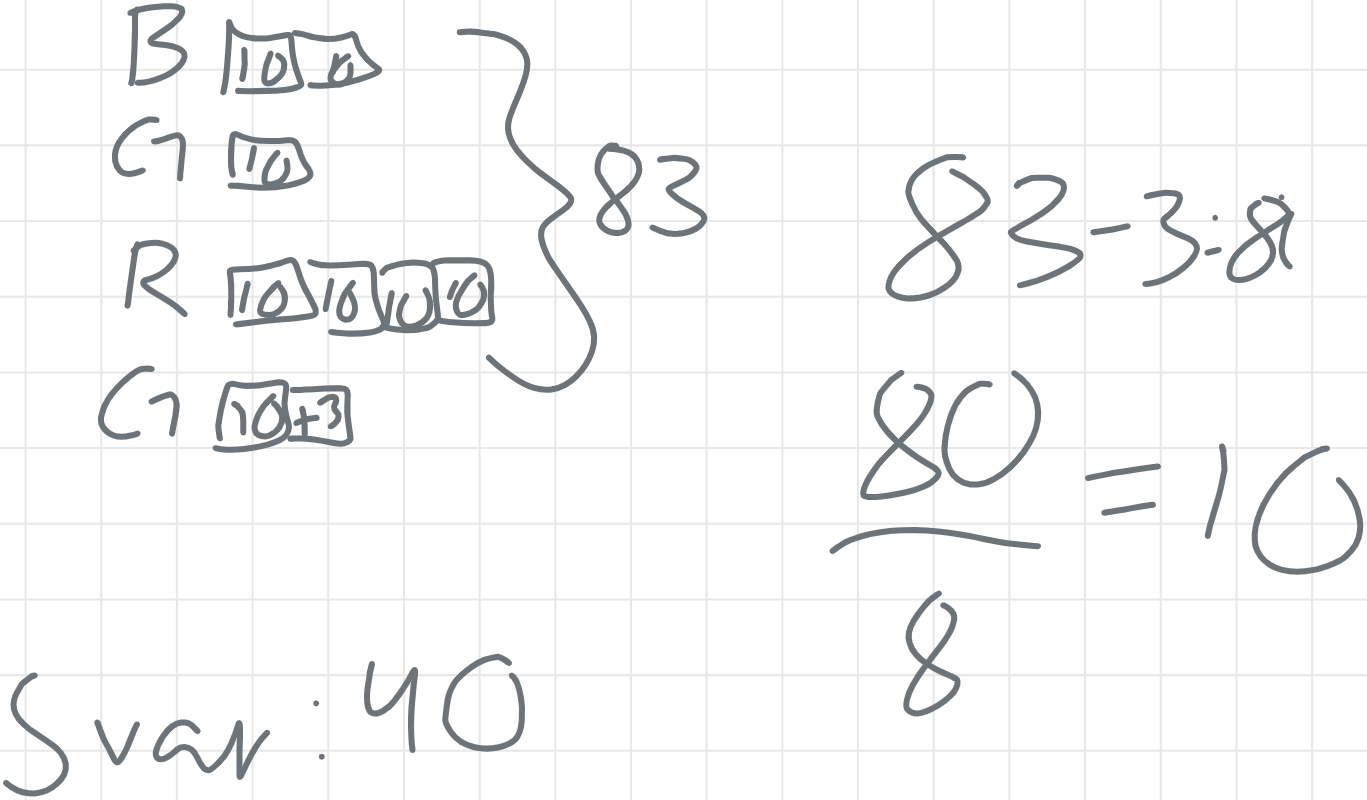 B 10 10
G 10
R 10 10 10 10
G 10 +3
83
83-3:8
80
= 10
8
Svar: 40